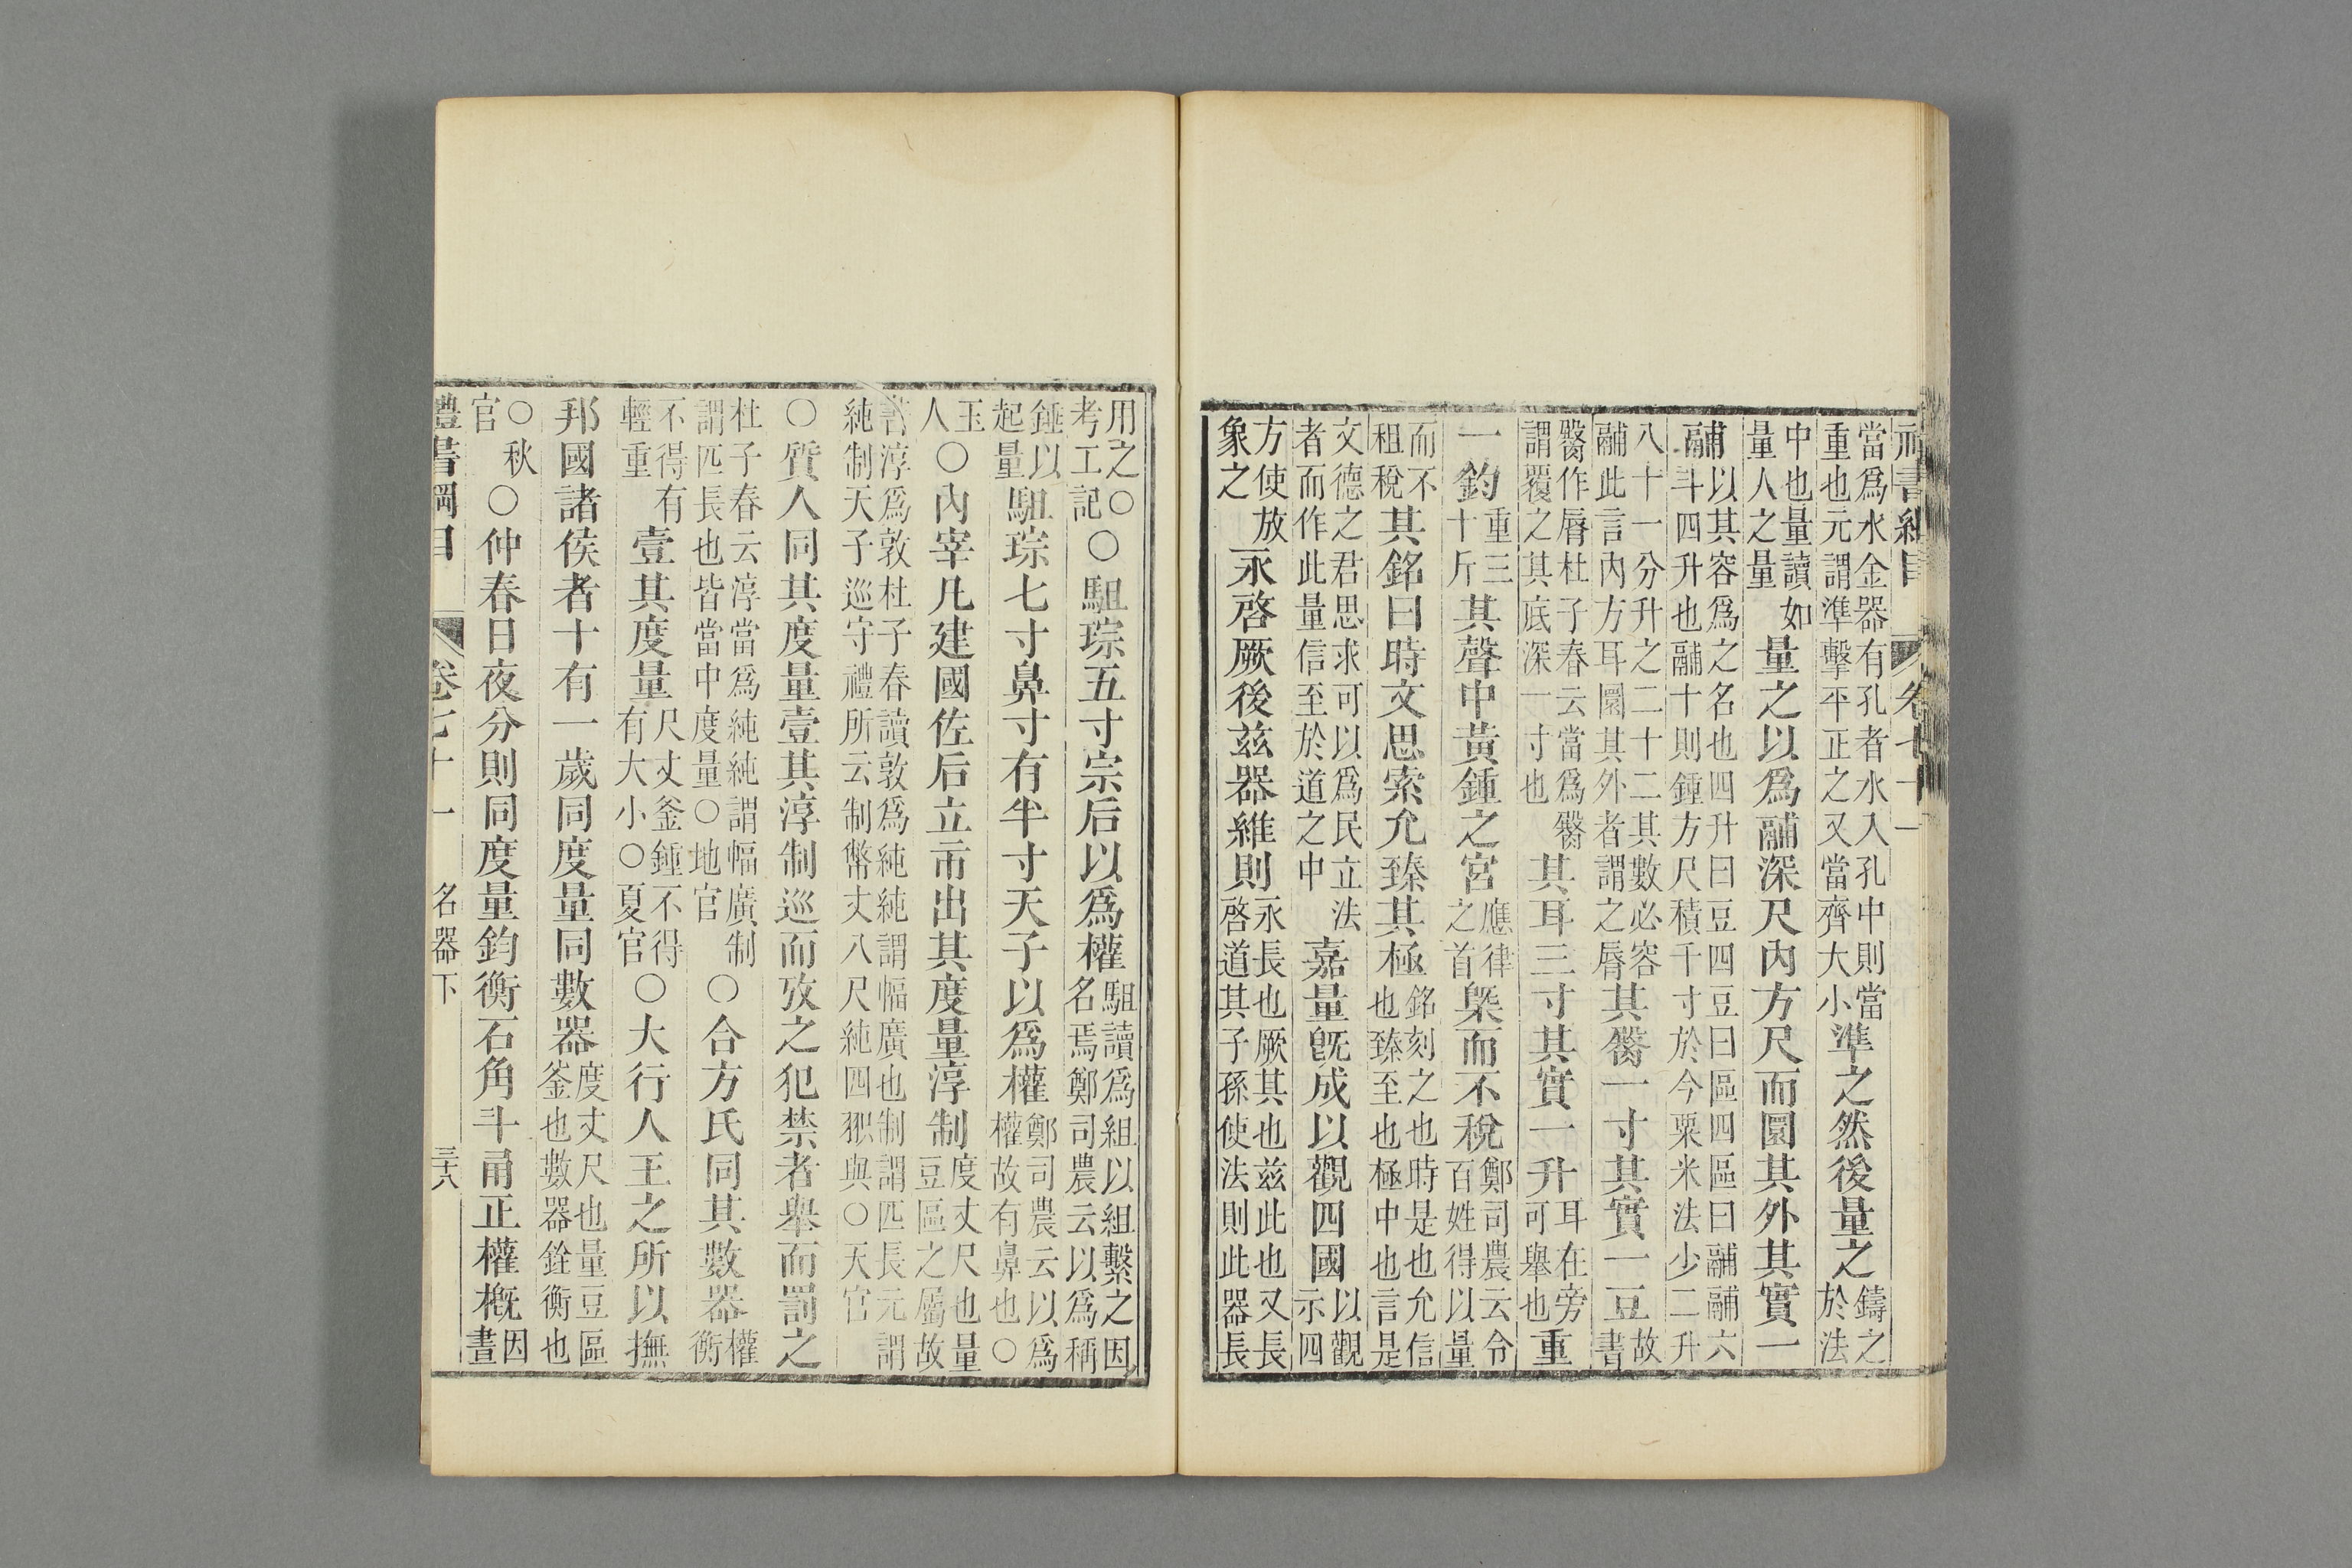 禮書綱目 卷七十一
當爲水金器有孔者水入孔中則當重也元謂準擊平正之又當齊大小準之然後量之鑄之於法
中也量讀如量人之量量之以爲鬴深尺內方尺而圜其外其實一
鬴以其容爲之名也四升曰豆四豆曰區四區曰鬴鬴六斗四升也鬴十則鍾方尺積千寸於今粟米法少二升
八十一分升之二十二其數必容鬴此言內方耳圜其外者謂之脣其臋一寸其實一豆故書
臋作脣杜子春云當爲臋謂覆之其底深一寸也其耳三寸其實一升耳在旁可舉也重
一鈞重三十斤其聲中黃鍾之宮應律之首㮣而不稅鄭司農云令百姓得以量
而不租稅其銘曰時文思索允臻其極銘刻之也時是也允信也臻至也極中也言是
文德之君思求可以爲民立法者而作此量信至於道之中嘉量旣成以觀四國以觀示四
方使放象之永啓厥後兹器維則永長也厥其也兹此也又長啓道其子孫使法則此器長
用之○考工記○駔琮五寸宗后以爲權駔讀爲組以組繫之因名焉鄭司農云以爲稱
錘以起量駔琮七寸鼻寸有半寸天子以爲權鄭司農云以爲權故有鼻也○
玉人○內宰凡建國佐后立市出其度量淳制度丈尺也量豆區之屬故
書淳爲敦杜子春讀敦爲純純謂幅廣也制謂匹長元謂純制天子巡守禮所云制幣丈八尺純四㸦與○天官
○質人同其度量壹其淳制巡而攷之犯禁者舉而罰之
杜子春云淳當爲純純謂幅廣制謂匹長也皆當中度量○地官○合方氏同其數器權衡
不得有輕重壹其度量尺丈釜鍾不得有大小○夏官○大行人王之所以撫
邦國諸侯者十有一歲同度量同數器度丈尺也量豆區釜也數器銓衡也
○秋官○仲春日夜分則同度量鈞衡石角斗甬正權概因晝
禮書綱目 卷七十一 名器下 三十八